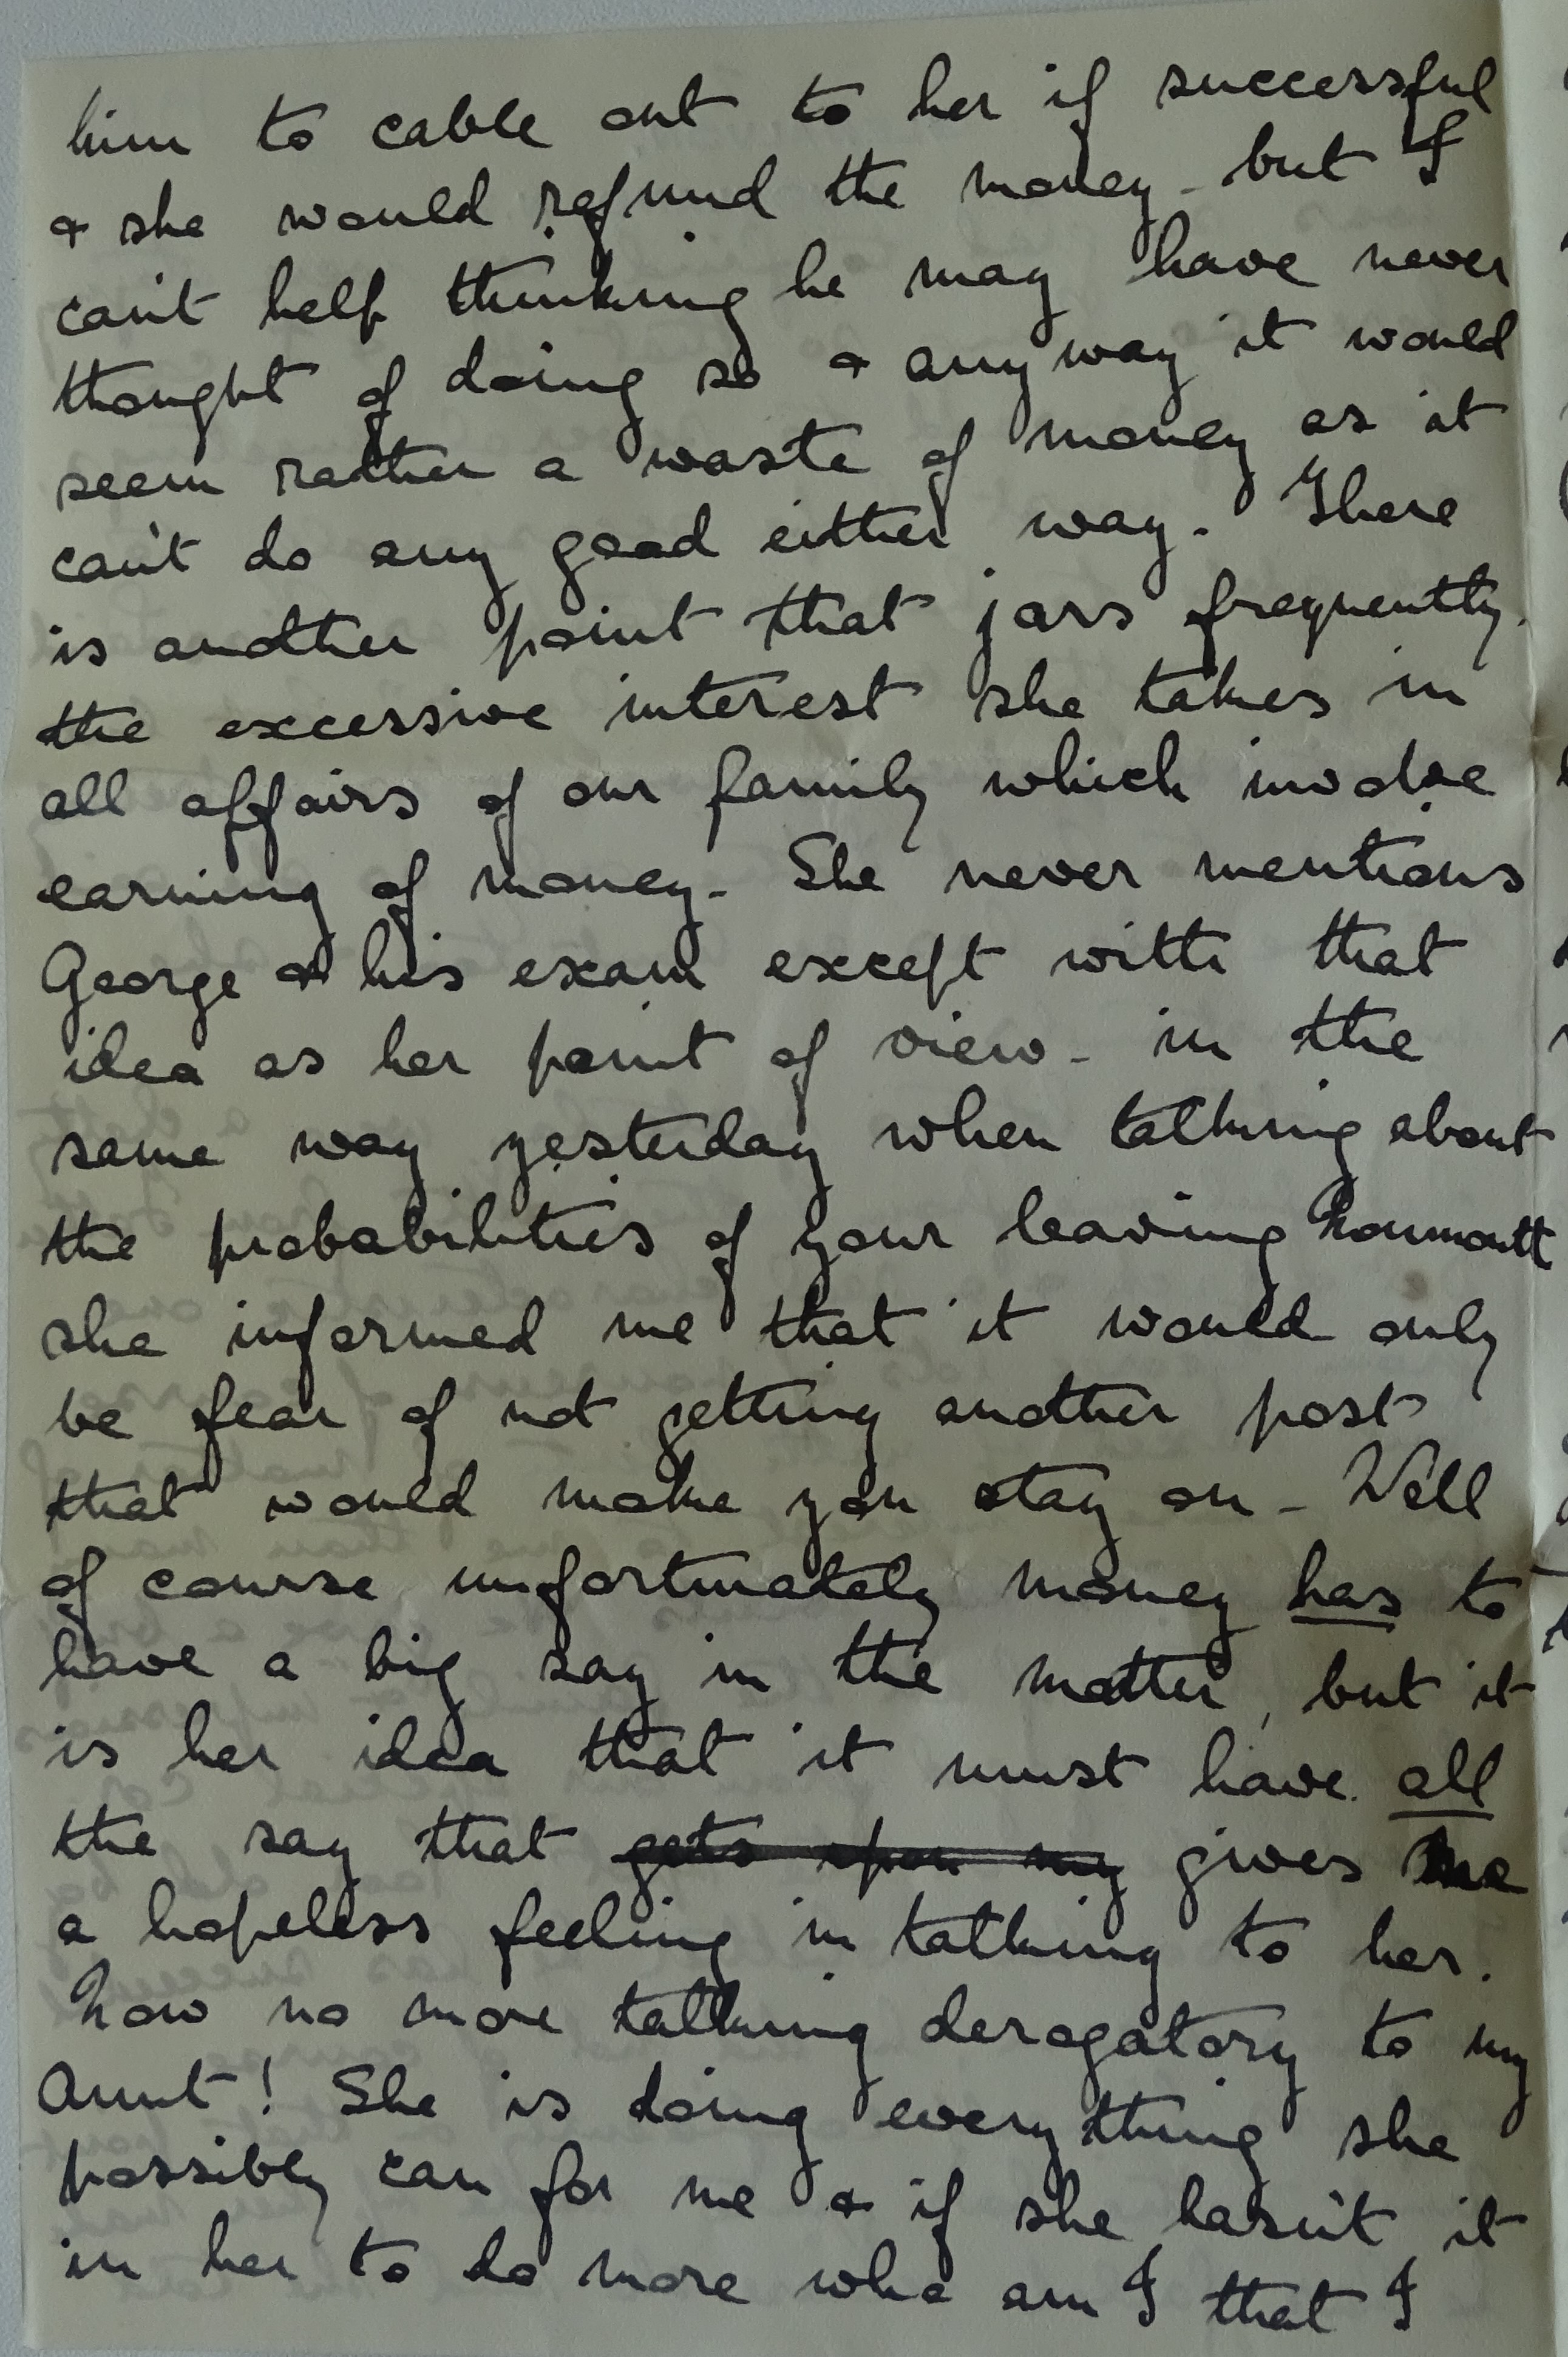 him to cable out to her if successful
& she would refund the money - but I
can't help thinking he may have never
thought of doing so & anyway it would
seem rather a waste of money as it
can't do any good either way. There
is another point that jars frequently.
the excessive interest she takes in
all affairs of our family which involve
earning of money - She never mentions
George & his exam except with that
idea as her point of view - in the
same way yesterday when talking about
the probabilities of your leaving
she informed me that it would only
be fear of not getting another post
that would make you stay on - Well
of course unfortunately money has to
have a big say in the matter, but it
is her idea that it must have all
the say that gets upon my gives me
a hopeless feeling in talking to her.
Now no more talking derogatory to my
Aunt! She is doing everything she
possibly can for me & if she hasn't it
in her to do more who am I that I